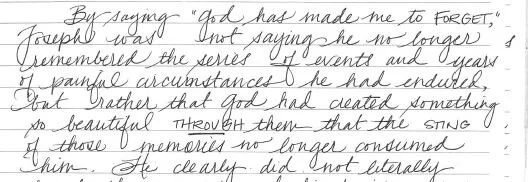 By saying "God has made me to FORGET,"
Joseph was not saying he no longer
remembered the series of events and years
of painful circumstances he had endured,
but rather that God had created something
so beautiful THROUGH them that the STING
of those memories no longer consumed
him. He clearly did not literally